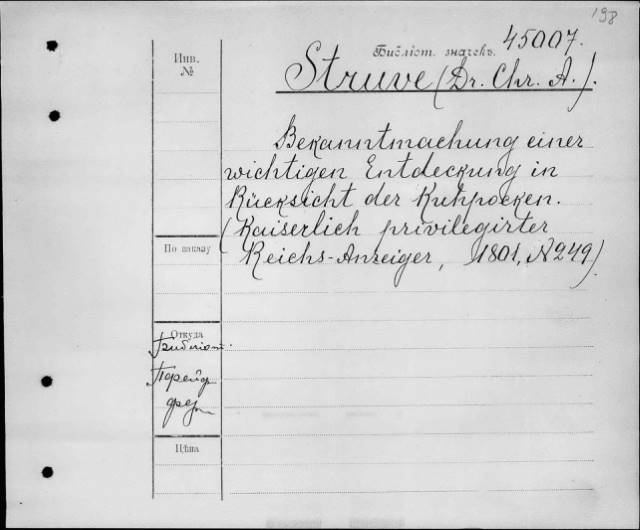 198
Библіот. значекъ. 45007.
Инв.
№
Struve (Dr. Chr. A.).
Bekanntmachung einer
wichtigen Entdeckung in
Rücksicht der Kuhpocken.
(Kaiserlich privilegirter
Reichs-Anzeiger, 1801, N 249).
По заказу
Откуда
Цѣна